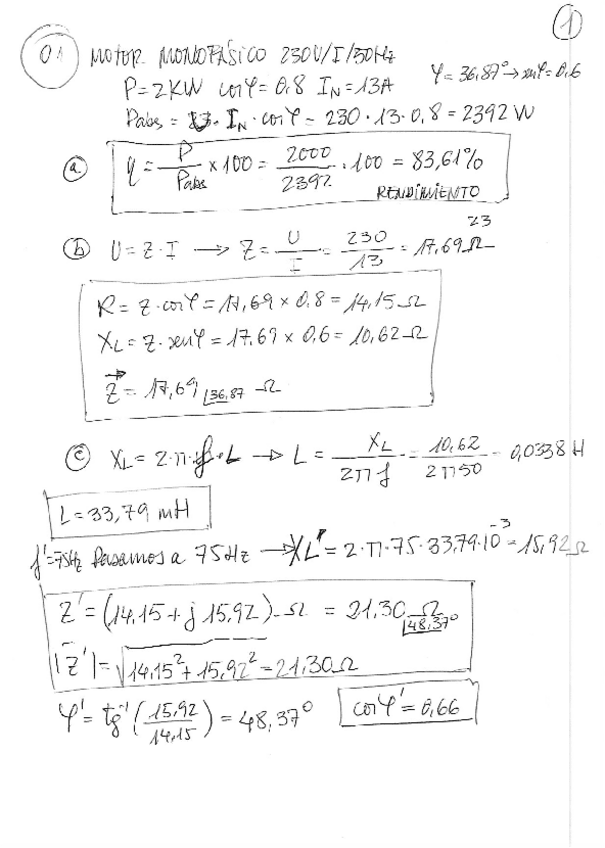 1
01 MOTOR MONOFÁSICO 230V/I/50Hz
P=2KW cosφ=0.8 I_N=13A φ=36,87°→senφ=0.6
Pabs = U·I_N·cosφ = 230·13·0,8 = 2392 W
a) η = P/Pabs ×100 = 2000/2392 ·100 = 83,61%
RENDIMIENTO
23
b) U=Z·I → Z = U/I = 230/13 = 17,69 Ω
R = Z·cosφ = 17,69 × 0,8 = 14,15 Ω
X_L = Z·senφ = 17,69 × 0,6 = 10,62 Ω
Z⃗ = 17,69 ∟36,87 Ω
c) X_L = 2·π·f·L → L = X_L/2πf = 10,62/2π50 = 0,0338 H
L = 33,79 mH
f'=75Hz Pasamos a 75Hz → X_L' = 2·π·75·33,79·10⁻³ = 15,92 Ω
Z' = (14,15 + j 15,92) Ω = 21,30 ∟48,37° Ω
|Z̄'| = √14,15² + 15,92² = 21,30 Ω
φ' = tg⁻¹(15,92/14,15) = 48,37° cosφ' = 0,66